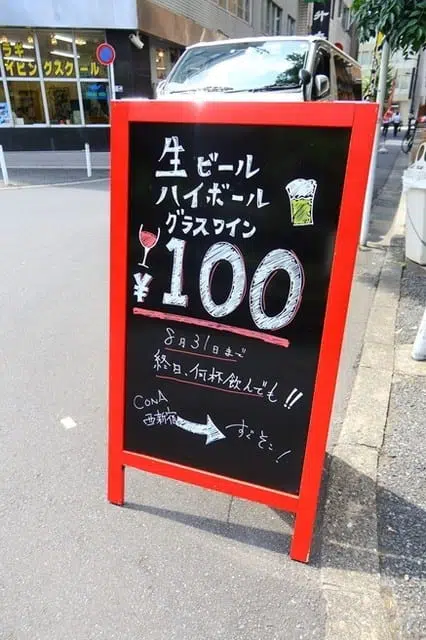 ラギ
イビングスクール
生ビール
ハイボール
グラスワイン
¥100
8月31日まで
終日、何杯飲んでも!!
CONA
西新宿
すぐそこ!